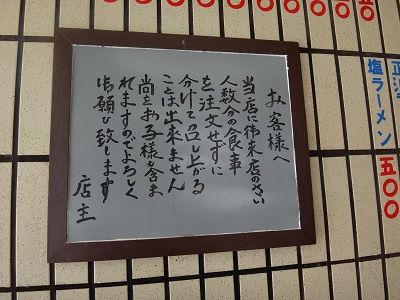 塩ラーメン 五〇〇
お客様へ
当店に御来店のさい
人数分の食事
を注文せずに
分けて召し上がる
ことは出来ません
尚をお子様含ま
れますのでよろしく
御願い致します
店主